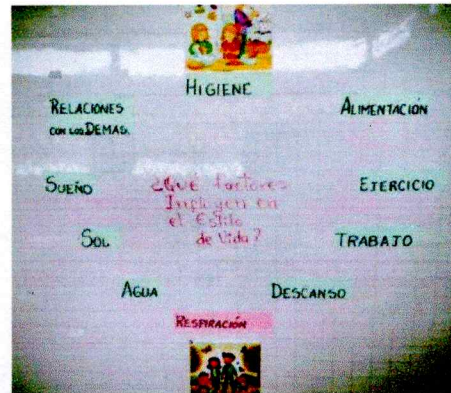 HIGIENE
RELACIONES
CON LOS DEMAS.
ALIMENTACIÓN
SUEÑO
¿Qué factores
Influyen en
el Estilo
de Vida?
EJERCICIO
SOL
TRABAJO
AGUA
DESCANSO
RESPIRACIÓN